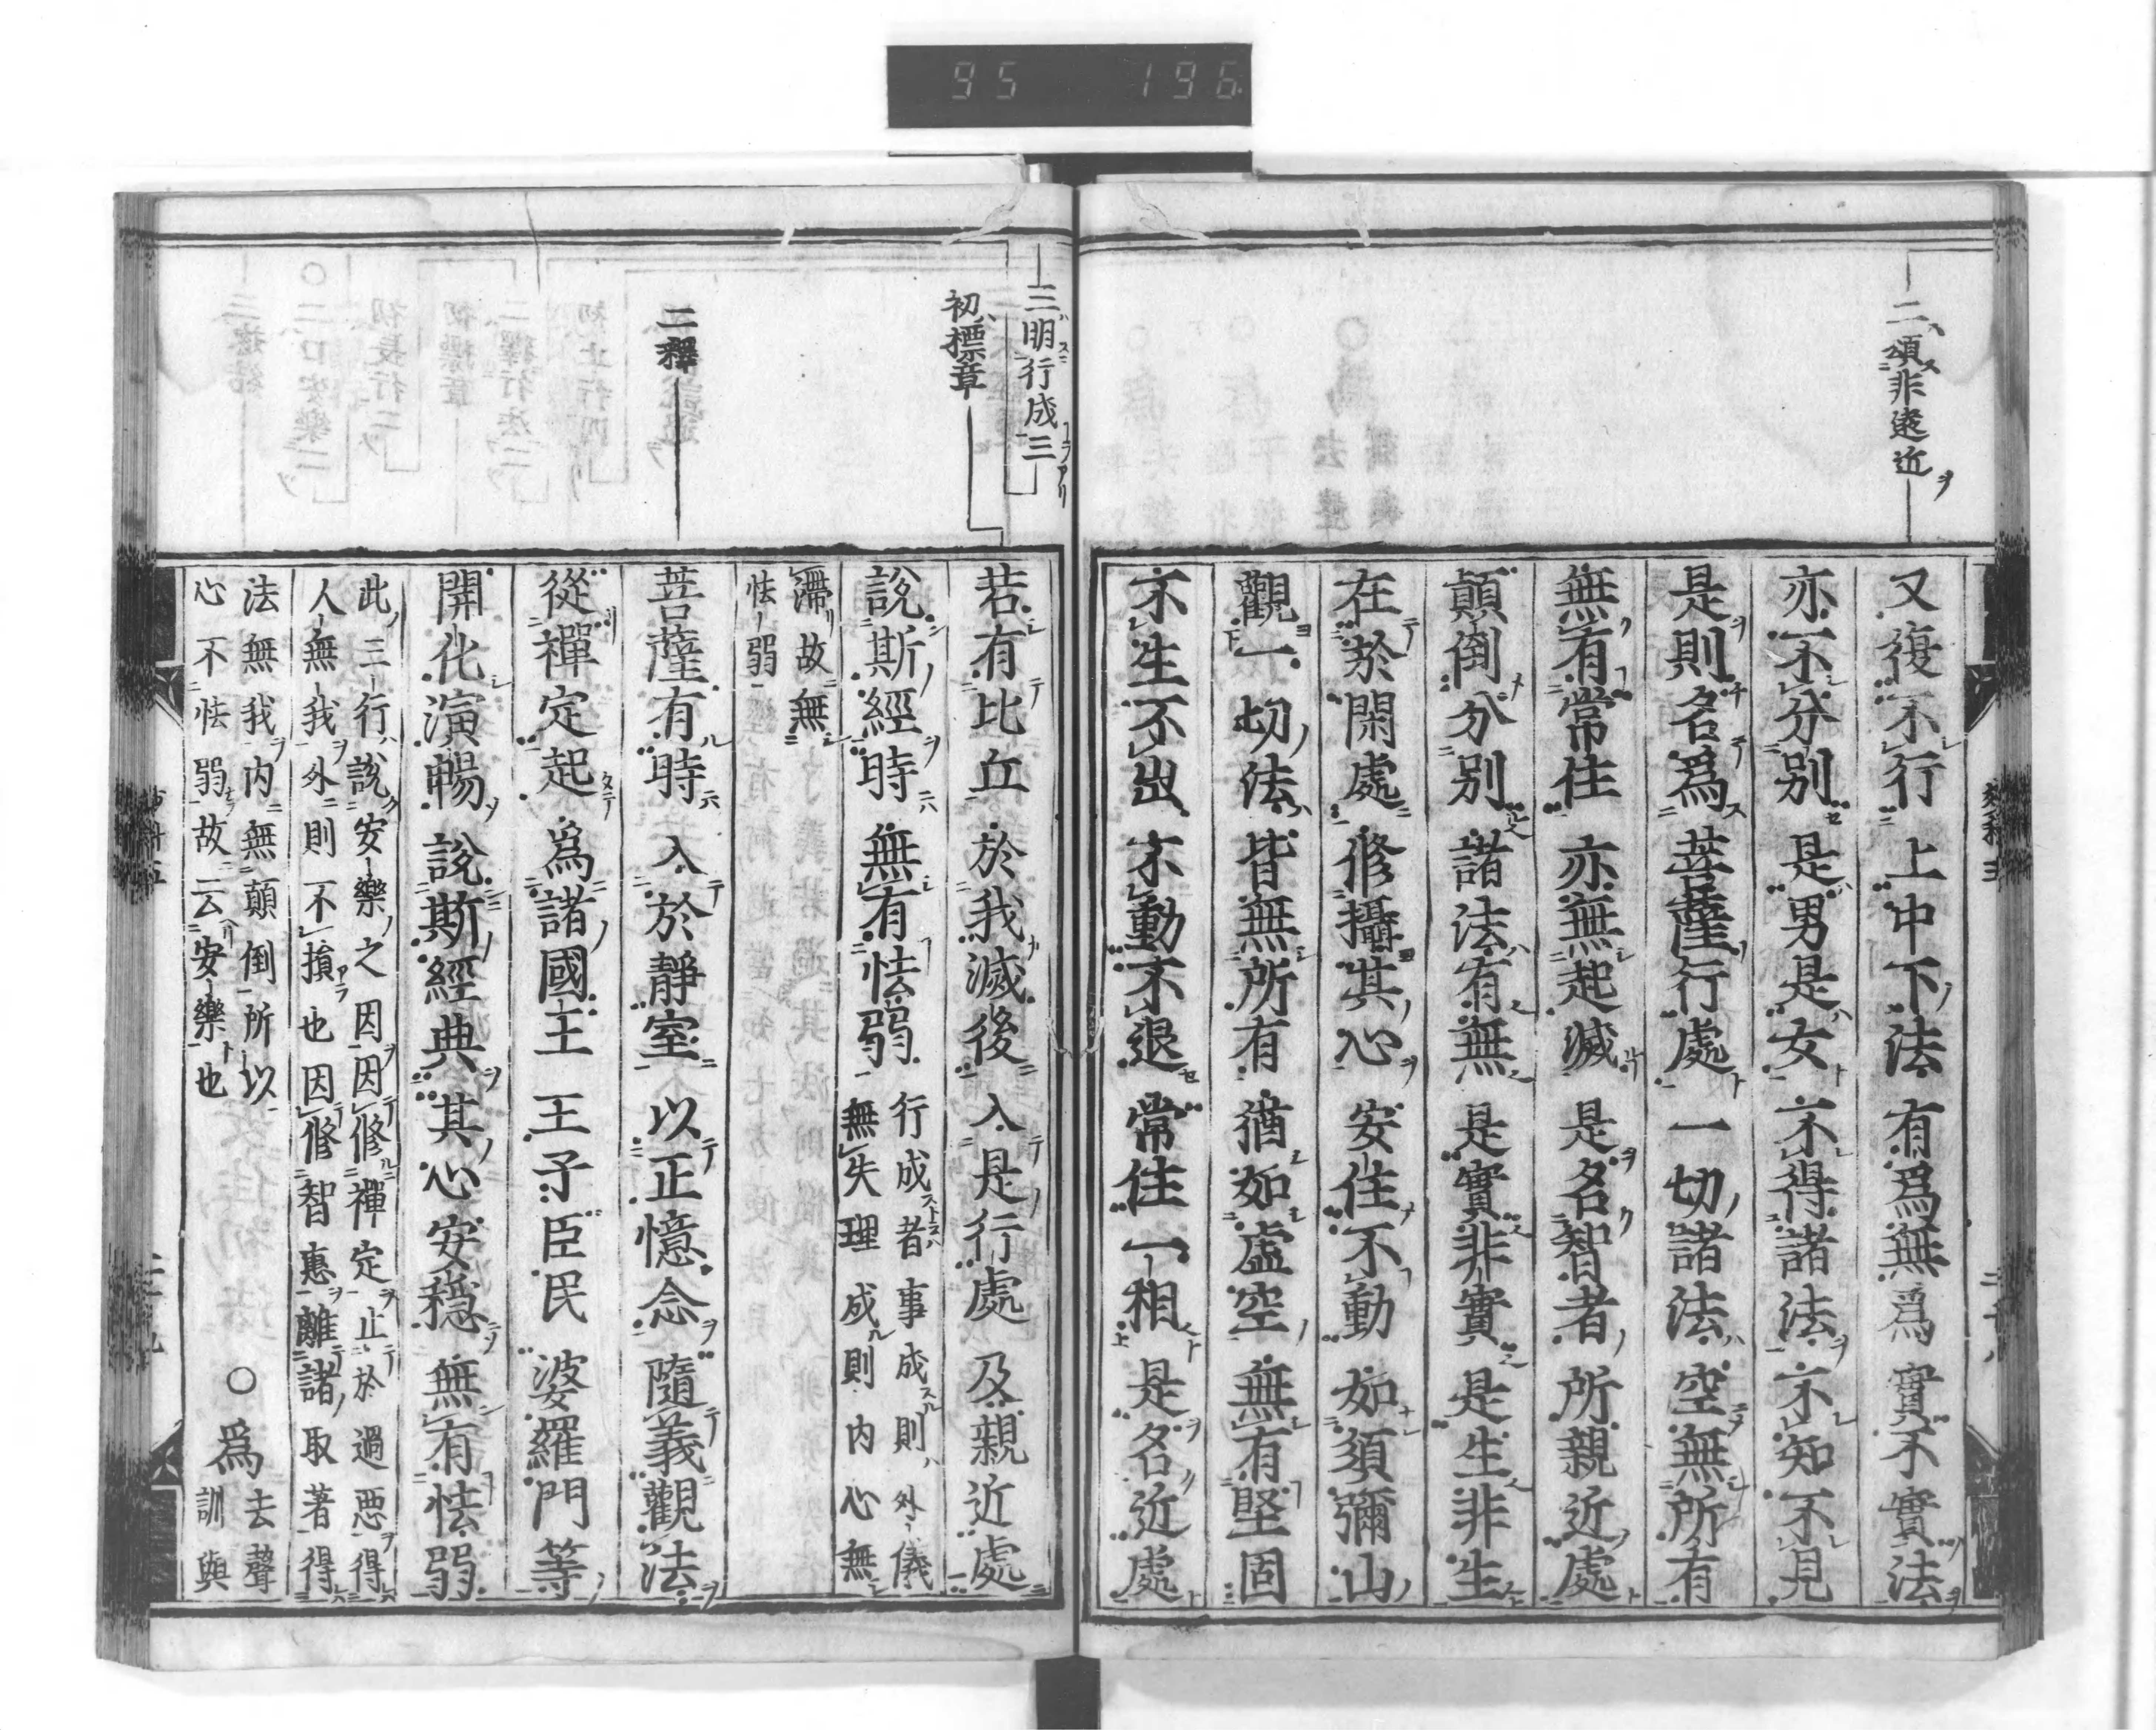 95 196
二頌非遠近
又復不行上中下法有爲無爲實不實法
亦不分別是男是女不得諸法不知不見
是則名爲菩薩行處一切諸法空無所有
無有常住亦無起滅是名智者所親近處
顛倒分別諸法有無是實非實是生非生
在於閑處修攝其心安住不動如須彌山
觀一切法皆無所有猶如虛空無有堅固
不生不出不動不退常住一相是名近處
三明行成三
初標章
二釋
若有比丘於我滅後入是行處及親近處
說斯經時無有怯弱
行成者事成則外儀
無失理成則内心無
滯故無
怯弱
菩薩有時入於靜室以正憶念隨義觀法
從禪定起爲諸國王王子臣民婆羅門等
開化演暢說斯經典其心安穩無有怯弱
此三行說安樂之因因修禪定止於過惡得
人無我外則不損也因修智惠離諸取著得
法無我内無顛倒所以
心不怯弱故云安樂也
○爲
去聲
訓與